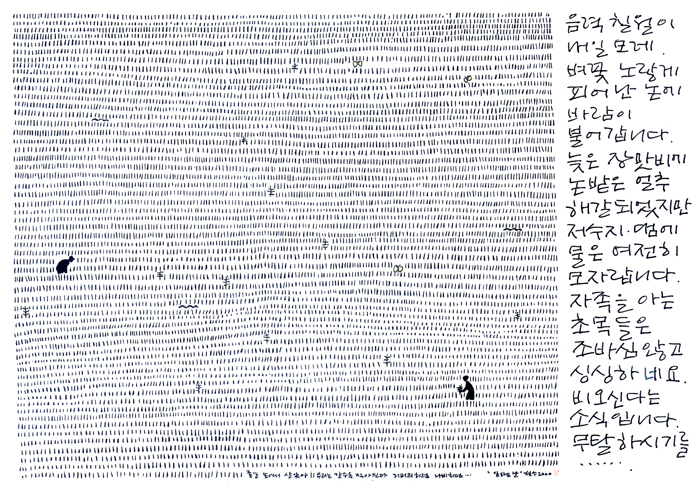 음력 칠월이
내일 모레.
벼꽃 노랗게
피어난 논에
바람이
불어갑니다.
늦은 장맛비에
논밭은 얼추
해갈되었지만
저수지·댐에
물은 여전히
모자랍니다.
자족을 아는
초목들은
조바심 않고
싱싱하네요.
비오신다는
소식입니다.
무탈하시기를
......